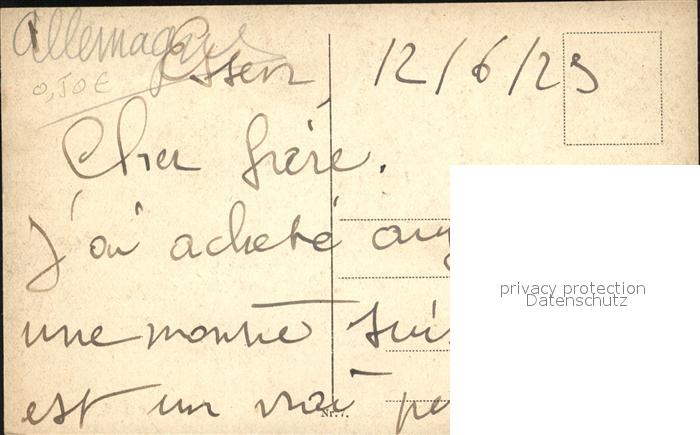 Allemagne
0,50 €
Essen, 12/6/23
Cher frère.
J'ai acheté
une montre
est un vrai
privacy protection
Datenschutz